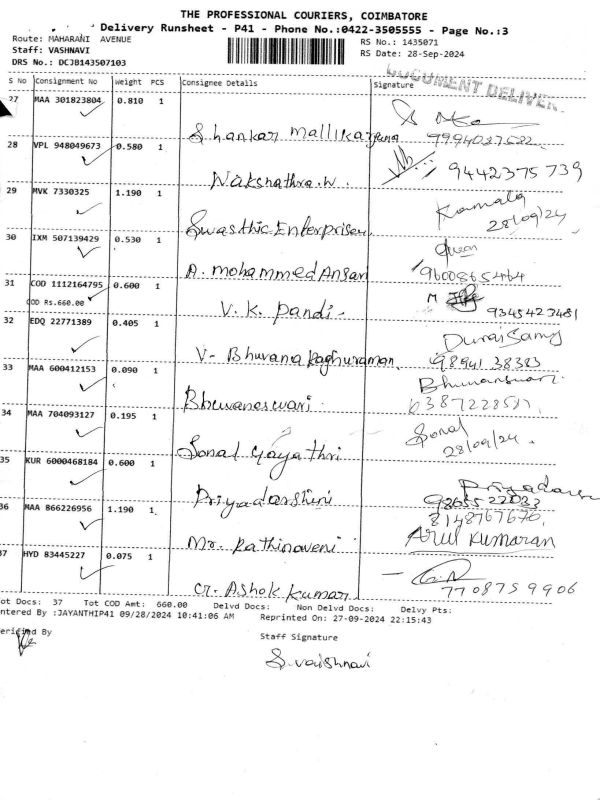 THE PROFESSIONAL COURIERS, COIMBATORE
Delivery Runsheet - P41 - Phone No.:0422-3505555 - Page No.:3
Route: MAHARANI AVENUE
RS No.: 1435071
Staff: VASHNAVI
RS Date: 28-Sep-2024
DRS No.: DCJB143507103
DOCUMENT DELIVER
S No Consignment No Weight PCS Consignee Details Signature
27 MAA 301823804 0.810 1
Shankar Mallikarjuna 9994037582
28 VPL 948049673 0.580 1
Nakshathra.W. 9442375739
29 MVK 7330325 1.190 1 Kamala
Swasthic Enterprises 28/09/24
30 IXM 507139429 0.530 1
A. Mohammed Ansari 9600865464
31 COD 1112164795 0.600 1
COD Rs.660.00
V. K. Pandi- 9345423481
32 EDQ 22771389 0.405 1 Duraisamy
V- Bhuvana Raghuraman 98941 38383
33 MAA 600412153 0.090 1 Bhuvaneswari
Bhuvaneswari
34 MAA 704093127 0.195 1 Sonal
Sonal Gayathri 28/09/24.
35 KUR 6000468184 0.600 1
Priyadarshini 9865522033
36 MAA 866226956 1.190 1 8148767670,
Mr. Rathinaveni Arul Kumaran
37 HYD 83445227 0.075 1
Cr. Ashok Kumar 7708759906
ot Docs: 37 Tot COD Amt: 660.00 Delvd Docs: Non Delvd Docs: Delvy Pts:
ntered By :JAYANTHIP41 09/28/2024 10:41:06 AM Reprinted On: 27-09-2024 22:15:43
erified By
Staff Signature
S.vaishnavi